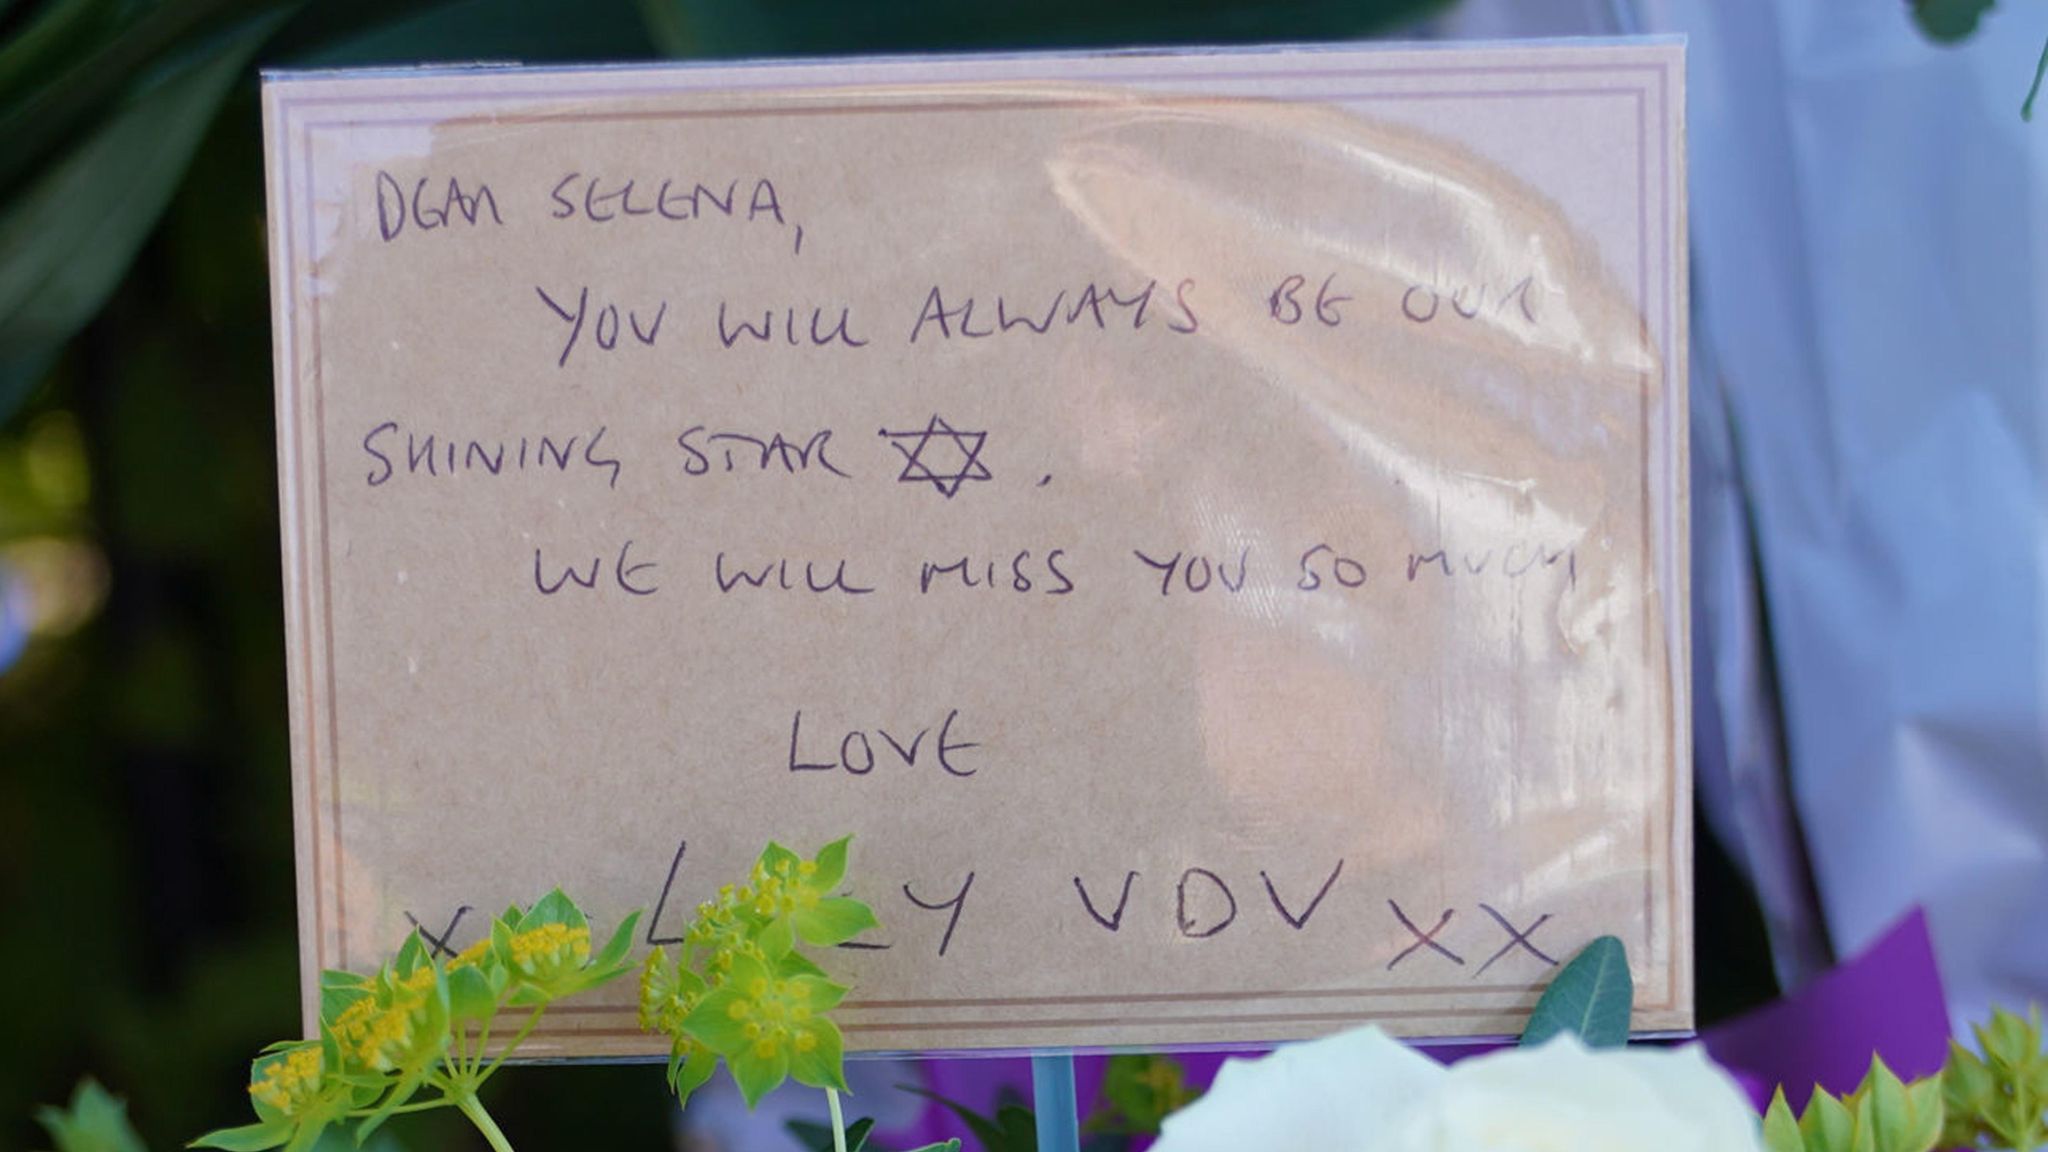 DEAR SELENA,
YOU WILL ALWAYS BE OUR
SHINING STAR ✡.
WE WILL MISS YOU SO MUCH
LOVE
VDV XX